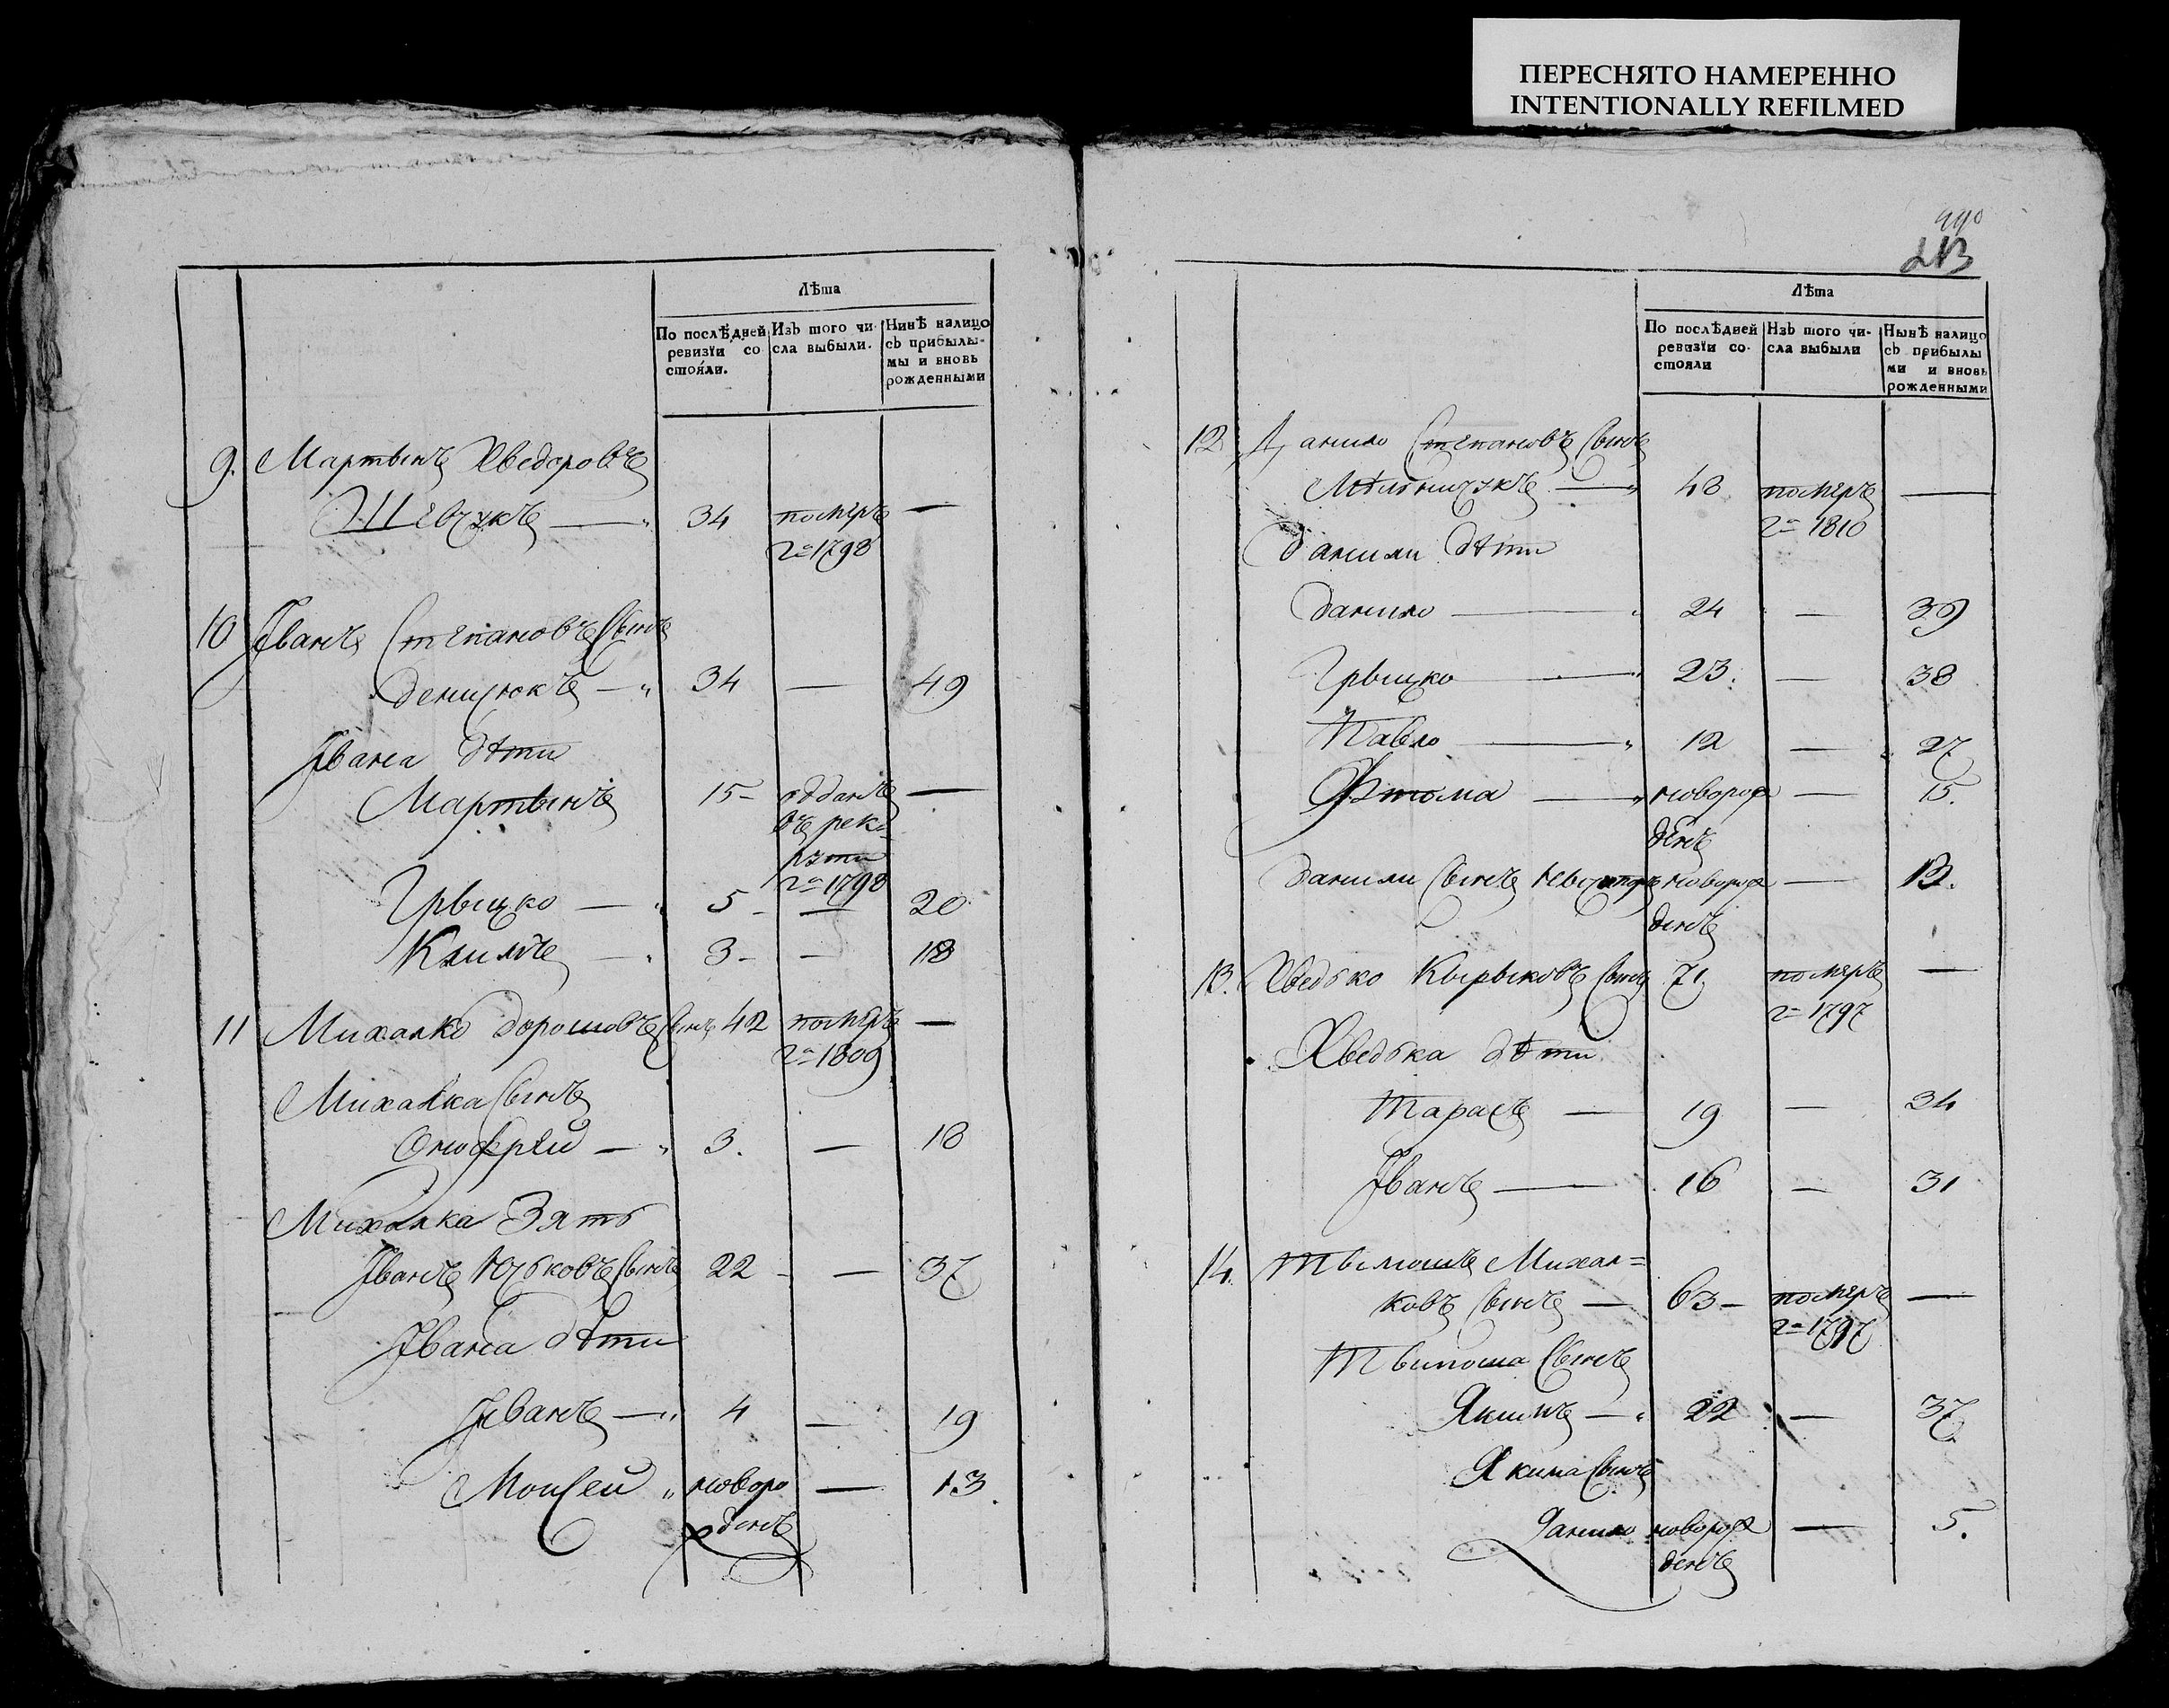 ПЕРЕСНЯТО НАМЕРЕННО
INTENTIONALLY REFILMED
Лѣта
По послѣдней ревизїи состояли.
Изъ того числа выбыли.
Нинѣ налицо съ прибылымы и вновь рожденными
9. Мартынъ Хведоровъ
Шевчукъ — 34 померъ —
га 1798
10 Іванъ Степановъ Сынъ
Денисюкъ — 34 — 49
Івана дѣти
Мартынъ 15 – отданъ —
въ рек-
рути
га 1798
Грыцко — 5 – — 20
Климъ — 3 – — 18
11 Михалко Дорошовъ Сынъ 42 померъ —
га 1809
Михалка Сынъ
Онофрѣй — 3. — 18
Михалка Зять
Іванъ Сынъ 22 – — 37
Івана дѣти
Іванъ — 4 — 19
Моисей новоро — 13.
денъ
990
213
Лѣта
По послѣдней ревизїи состояли
Изъ того числа выбыли
Нынѣ налицо съ прибылыми и вновь рожденными
12 Данило Степановъ Сынъ
Мѣльничукъ — 48 померъ —
га 1810
Данили дѣти
Данило — 24 — 39
Грыцко — 23. — 38
Павло — 12 — 27
новорож — 15.
денъ
Данили Сынъ новорож — 13.
денъ
13. Хведько Кырыковъ Сынъ 71 померъ —
га 1797
Хведька дѣти
Тарасъ — 19 — 34
Іванъ — 16 — 31
14. Тымошъ Михал=
ковъ Сынъ — 63 – померъ —
га 1797
Тымоша Сынъ
Якимъ — 22 — 37
Якима Сынъ
Данило новорож — 5.
денъ